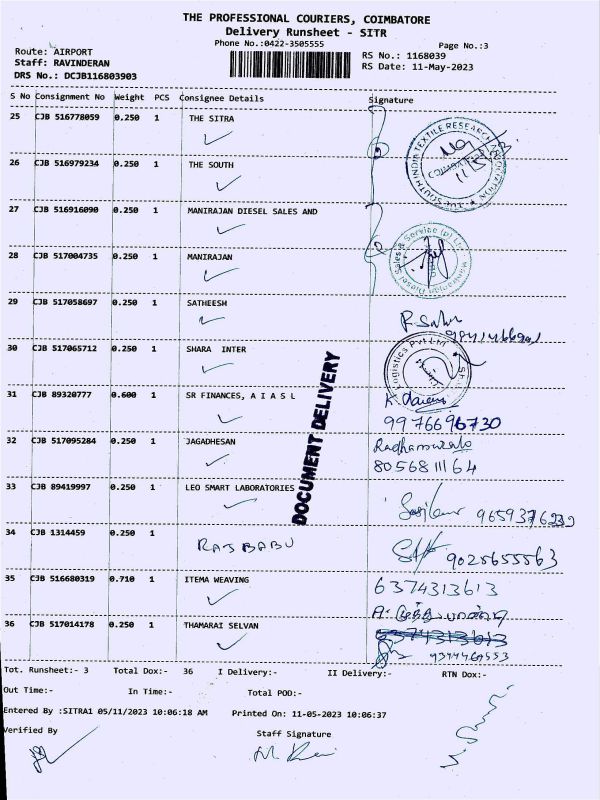 THE PROFESSIONAL COURIERS, COIMBATORE
Delivery Runsheet - SITR
Phone No.:0422-3505555
Page No.:3
Route: AIRPORT
RS No.: 1168039
Staff: RAVINDERAN
RS Date: 11-May-2023
DRS No.: DCJB116803903
S No Consignment No Weight PCS Consignee Details Signature
25 CJB 516778059 0.250 1 THE SITRA
26 CJB 516979234 0.250 1 THE SOUTH
27 CJB 516916090 0.250 1 MANIRAJAN DIESEL SALES AND
28 CJB 517004735 0.250 1 MANIRAJAN
29 CJB 517058697 0.250 1 SATHEESH
30 CJB 517065712 0.250 1 SHARA INTER
31 CJB 89320777 0.600 1 SR FINANCES, A I A S L
9976696730
32 CJB 517095284 0.250 1 JAGADHESAN
8056811164
33 CJB 89419997 0.250 1 LEO SMART LABORATORIES
34 CJB 1314459 0.250 1 RAJBABU
9025655563
35 CJB 516680319 0.710 1 ITEMA WEAVING
6374313613
36 CJB 517014178 0.250 1 THAMARAI SELVAN
DOCUMENT DELIVERY
Tot. Runsheet:- 3 Total Dox:- 36 I Delivery:- II Delivery:- RTN Dox:-
Out Time:- In Time:- Total POD:-
Entered By :SITRA1 05/11/2023 10:06:18 AM Printed On: 11-05-2023 10:06:37
Verified By Staff Signature